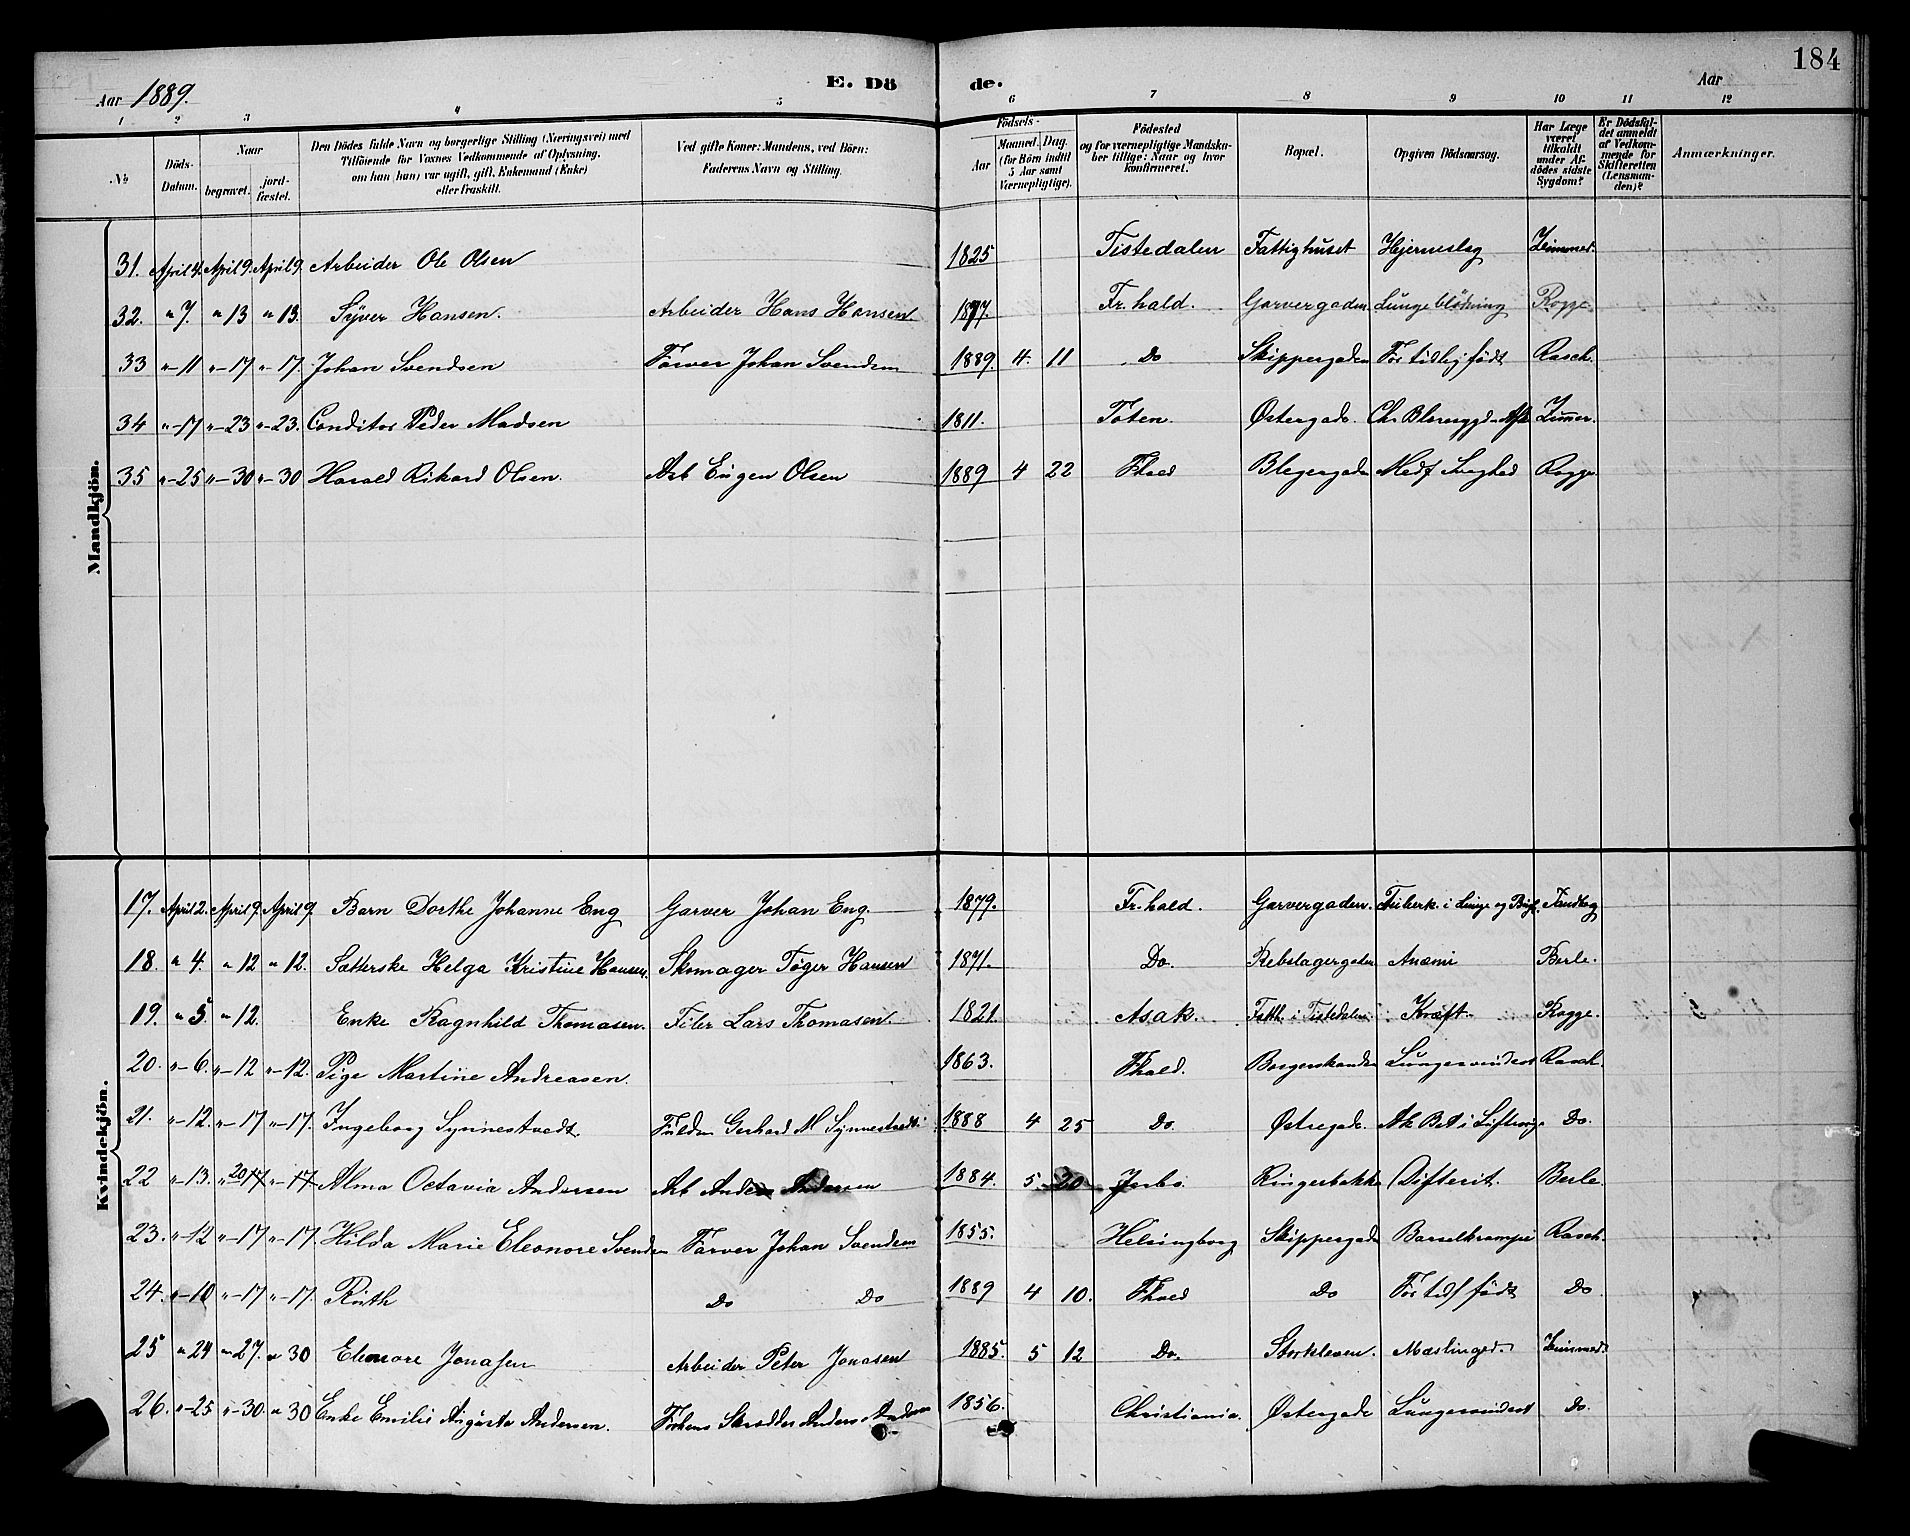 184
Aar 1889. E. Dö de. Aar
1 2 3 4 5 6 7 8 9 10 11 12
No
Döds-Datum.
Naar begravet. jordfæstet.
Den Dödes fulde Navn og borgerlige Stilling (Næringsvei) med Tilföiende for Voxnes Vedkommende af Oplysning, om han (hun) var ugift, gift, Enkemand (Enke) eller fraskilt.
Ved gifte Koner: Mandens, ved Börn: Faderens Navn og Stilling.
Födsels-
Aar Maaned. Dag. (for Börn indtil 5 Aar samt Værnepligtige).
Födested og for værnepligtige Mandskaber tillige: Naar og hvor konfirmeret.
Bopæl.
Opgiven Dödsaarsag.
Har Læge været tilkaldt under Afdödes sidste Sygdom?
Er Dödsfaldet anmeldt af Vedkommende for Skifteretten (Lensmanden)?
Anmærkninger.
Mandkjön.
31. April 4. April 9. April 9. Arbeider Ole Olsen 1825 Tistedalen Fattighuset Hjerneslag
32. " 7. " 13 " 13. Syver Hansen. Arbeider Hans Hansen Fr.hald. Garvergaden Lungeblødning Rogge
33 "-11 "-17 "-17. Johan Svendsen Farver Johan Svendsen 1889. 4. 11 Do Skippergaden For tidlig født Rasch.
34 "-17 "-23 "-23. Conditor Peder Madsen 1811. Toten. Østergade.
35 "-25 "-30 "-30 Harald Rikard Olsen. Arb Eugen Olsen 1889 4 22 Fhald Medf Svaghed Rogge
Kvindekjön.
17. April 2. April 9. April 9. Barn Dorthe Johanne Eng Garver Johan Eng. 1879. Fr.hald. Garvergaden. Tuberk. i Lunge og
18. " 4. " 12 " 12. Helga Kristine Hansen. Skomager Tøger Hansen 1871. Do. Rebslagergaden Anæmi Berle.
19. " 5. " 12. Enke Ragnhild Thomasen. Filer Lars Thomasen. 1821. Asak. Fatth. i Tistedalen Kræft. Rogge.
20. "-6. "-12 "-12. Pige Martine Andreasen. 1863. Fhald. Borgerskandsen Lungesvindsot Rasch.
21. "-12. "-17 "-17. Ingeborg Synnestvedt. Gerhard M Synnestvedt. 1888 4 25 Do. Østregade. Do.
22 "-13. " 20 17 "-17 Alma Octavia Andersen Arb Anders Andersen 1884. 5 20 Ringerbakke Difterit. Berle.
23. "-12 "-17 "-17. Hilda Marie Eleonore Svendsen Farver Johan Svendsen 1855. Helsingborg Skippergade Barselkrampe Rasch.
24. "-10 "-17 "-17. Ruth Do Do 1889 4 10. Fhald Do For tidl født Do.
25 " 24 "-27. " 30 Elenore Jonasen Arbeider Peter Jonasen 1885. 5 12 Do. Storkleven. Mæslinger.
26. "-25 "-30. " 30 Enke Emilie Augusta Andersen. Skrædder Anders Andersen 1856. Christiania. Østergade Lungesvindsot Do.